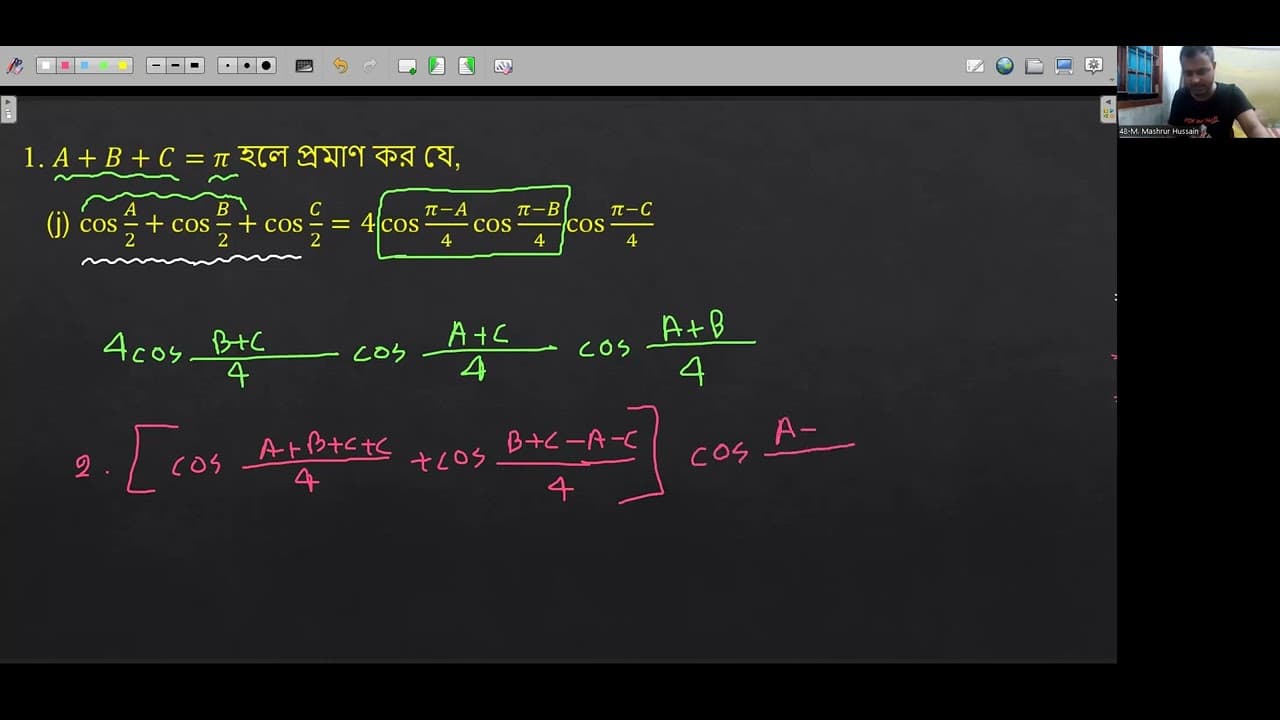 48-M. Mashrur Hussain
1. A + B + C = π হলে প্রমাণ কর যে,
(j) cos A/2 + cos B/2 + cos C/2 = 4 cos π−A/4 cos π−B/4 cos π−C/4
4cos B+C/4 cos A+C/4 cos A+B/4
2. [cos A+B+C+C/4 + cos B+C−A−C/4] cos A−